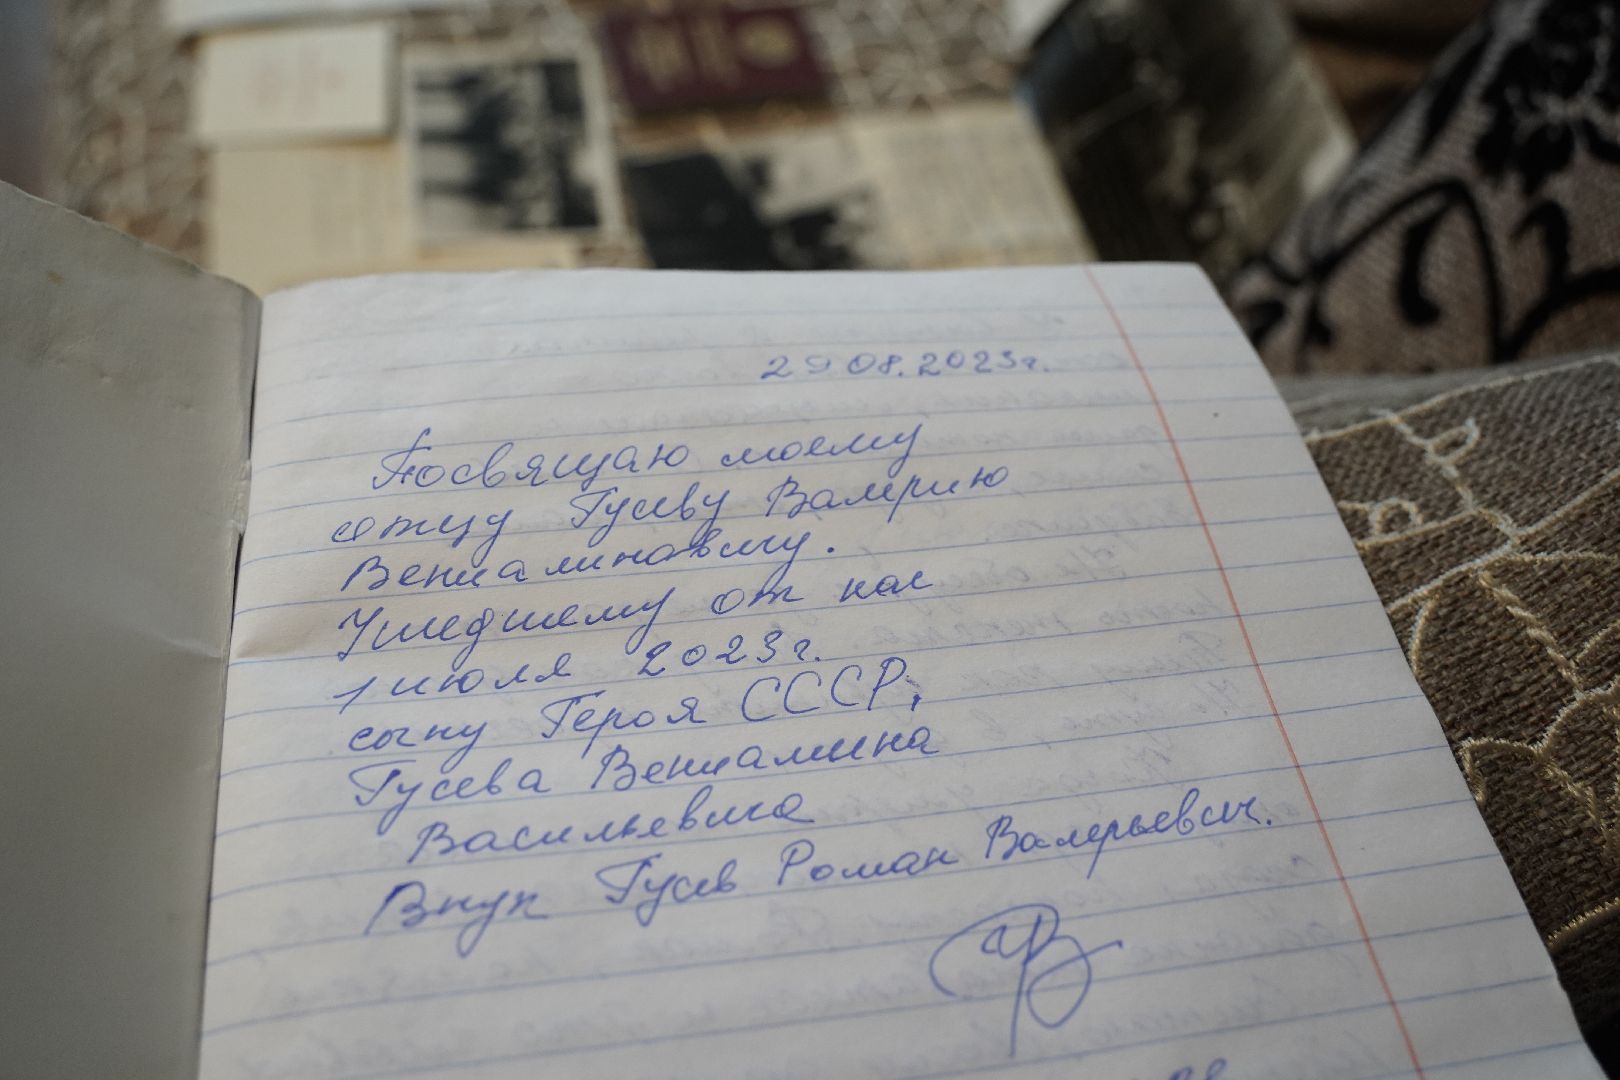 29 08.2023г.
Посвящаю моему
отцу Гусеву Валерию
Вениаминовичу.
Ушедшему от нас
1 июля 2023г.
сыну Героя СССР,
Гусева Вениамина
Васильевича
Внук Гусев Роман Валерьевич.